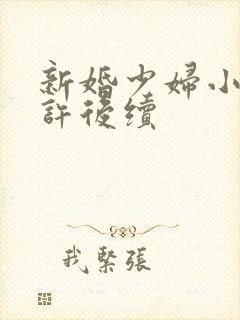 新婚少婦小
許後續
我緊張